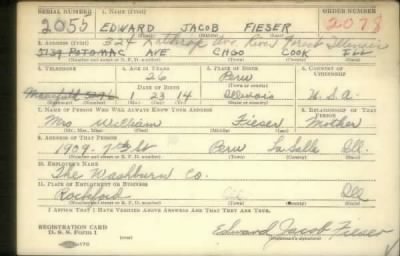 SERIAL NUMBER 1. NAME (Print) ORDER NUMBER
2055 EDWARD JACOB FIESER 2078
(First) (Middle) (Last)
2. ADDRESS (Print)
324 Lathrop Ave River Forest Illinois
5739 POTOMAC AVE CHGO COOK ILL
(Number and street or R. F. D. number) (Town) (County) (State)
3. TELEPHONE 4. AGE IN YEARS 5. PLACE OF BIRTH 6. COUNTRY OF CITIZENSHIP
26 Peru
DATE OF BIRTH (Town or county)
Mansfield 1 23 14 Illinois U.S.A.
(Exchange) (No.) (Mo.) (Day) (Yr.) (State or country)
7. NAME OF PERSON WHO WILL ALWAYS KNOW YOUR ADDRESS 8. RELATIONSHIP OF THAT PERSON
Mrs William Fieser Mother
(Mr., Mrs., Miss) (First) (Middle) (Last)
9. ADDRESS OF THAT PERSON
1909-7th St Peru La Salle Ill.
(Number and street or R. F. D. number) (Town) (County) (State)
10. EMPLOYER'S NAME
The Washburn Co.
11. PLACE OF EMPLOYMENT OR BUSINESS
Rockford Ill
(Number and street or R. F. D. number) (Town) (County) (State)
I AFFIRM THAT I HAVE VERIFIED ABOVE ANSWERS AND THAT THEY ARE TRUE.
REGISTRATION CARD
D. S. S. Form 1 Edward Jacob Fieser
(Registrant's signature)